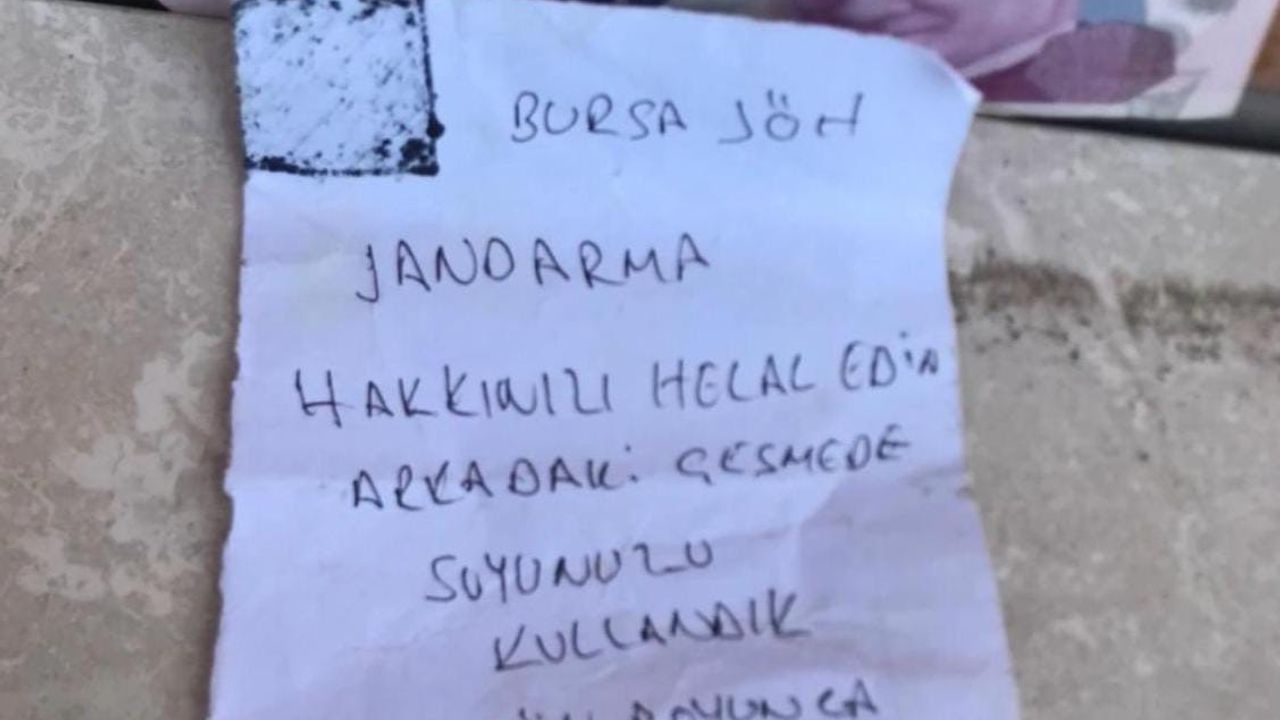 BURSA JÖH
JANDARMA
HAKKINIZI HELAL EDİN
ARKADAKİ ÇESMEDE
SUYUNUZU
KULLANDIK